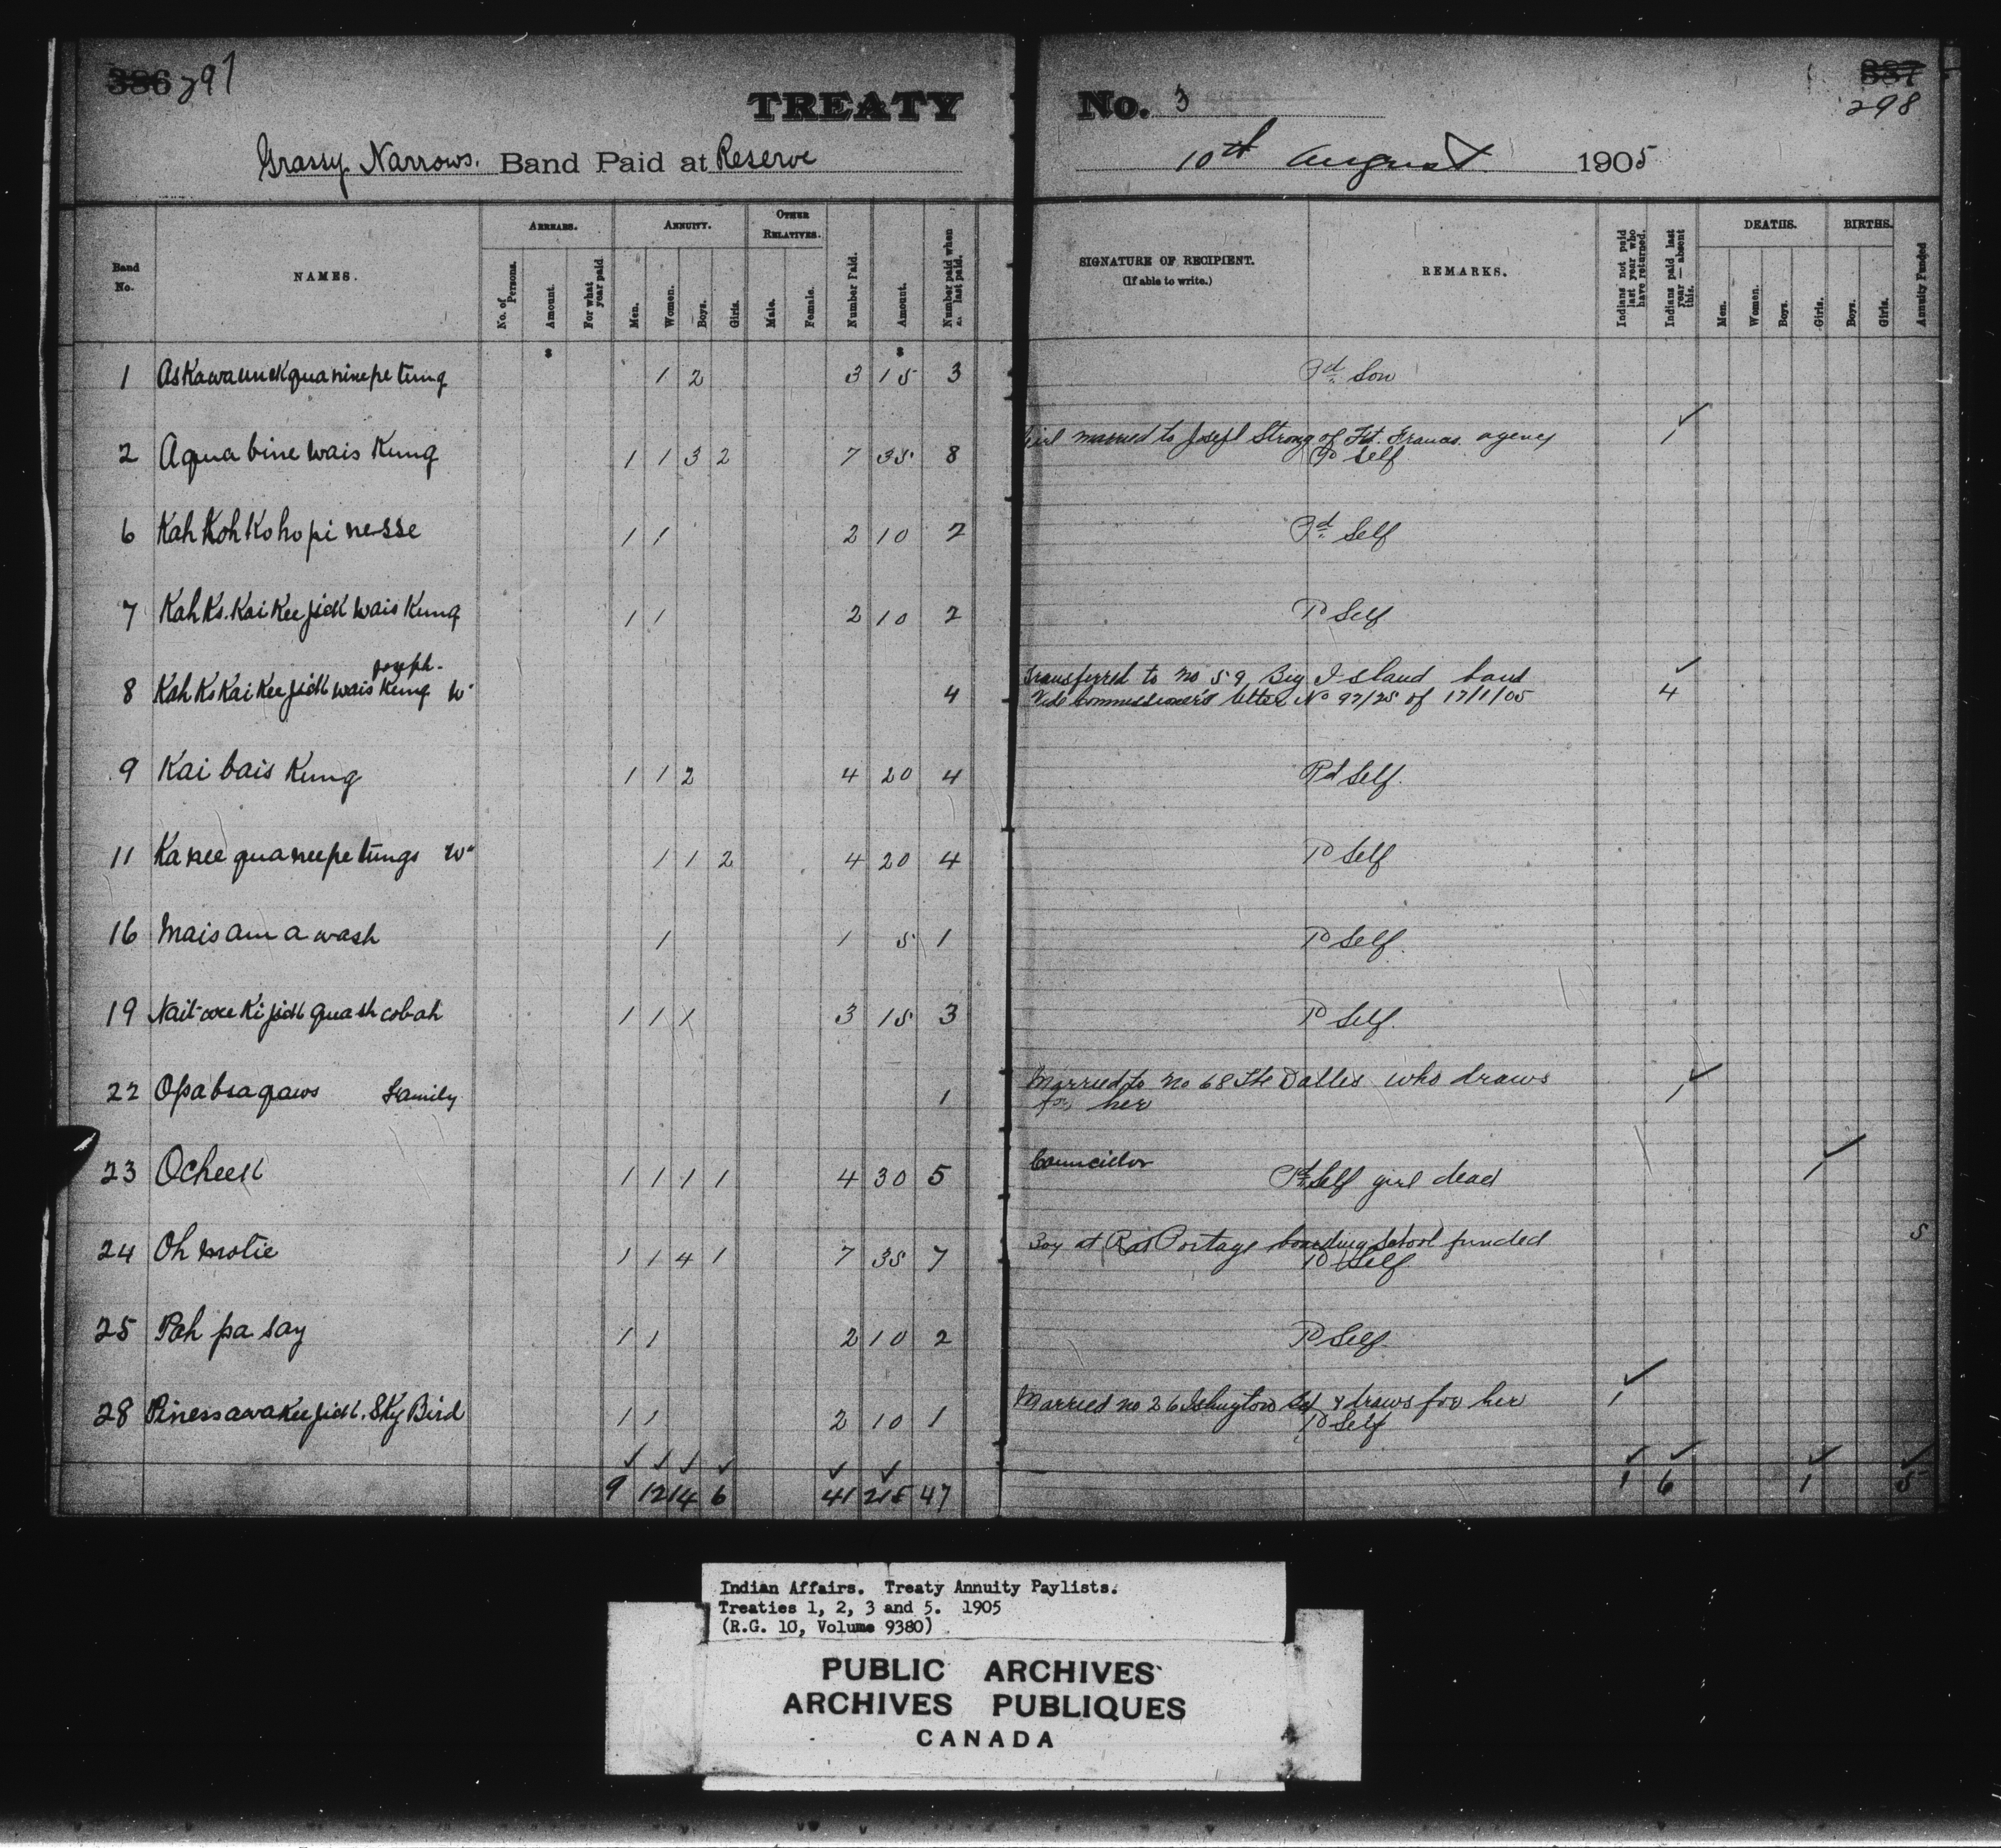 386 297
TREATY No. 3
387
298
Grassy Narrows. Band Paid at Reserve 10th August 1905
Band No. NAMES. ARREARS. No. of Persons. Amount. For what year paid. ANNUITY. Men. Women. Boys. Girls. OTHER RELATIVES. Male. Female. Number Paid. Amount. Number paid when last paid.
SIGNATURE OF RECIPIENT. (If able to write.) REMARKS. Indians not paid last year who have returned. Indians paid last year — absent this. DEATHS. Men. Women. Boys. Girls. BIRTHS. Boys. Girls. Annuity Funded
$ $
1 1 2 3 15 3 Pd. Son
2 Aqua bine wais Kung 1 1 3 2 7 35 8 Girl married to Josefl Strong of Ft. Frances agency 1
Pd Self
6 Kah Koh Ko ho pi nesse 1 1 2 10 2 Pd. Self
7 Kah Ks. Kai Kee jick wais Kung 1 1 2 10 2 Pd Self
8 Kah Ks Kai Kee jick wais Kung Joseph. W 4 Transferred to No 59 Big Island band 4
Vide Commissioner's letter No 97/25 of 17/1/05
9 Kai bais Kung 1 1 2 4 20 4 Pd Self.
11 Ka nee qua neepe tungs W 1 1 2 4 20 4 Pd Self
16 Mais am a wash 1 1 5 1 Pd Self.
19 1 1 1 3 15 3 Pd Self.
22 Family 1 Married to No 68 The Dalles who draws 1
for her
23 Ocheek 1 1 1 1 4 30 5 Councillor Pd Self girl dead 1
24 Oh motie 1 1 4 1 7 35 7 Boy at Rat Portage boarding School funded 5
Pd Self
25 Pah pa say 1 1 2 10 2 Pd Self.
28 Piness awa Kee jick. Sky Bird 1 1 2 10 1 Married No 26 Islington Bd & draws for her 1
Pd Self
9 12 14 6 41 215 47 1 6 1 5
Indian Affairs. Treaty Annuity Paylists.
Treaties 1, 2, 3 and 5. 1905
(R.G. 10, Volume 9380)
PUBLIC ARCHIVES
ARCHIVES PUBLIQUES
CANADA